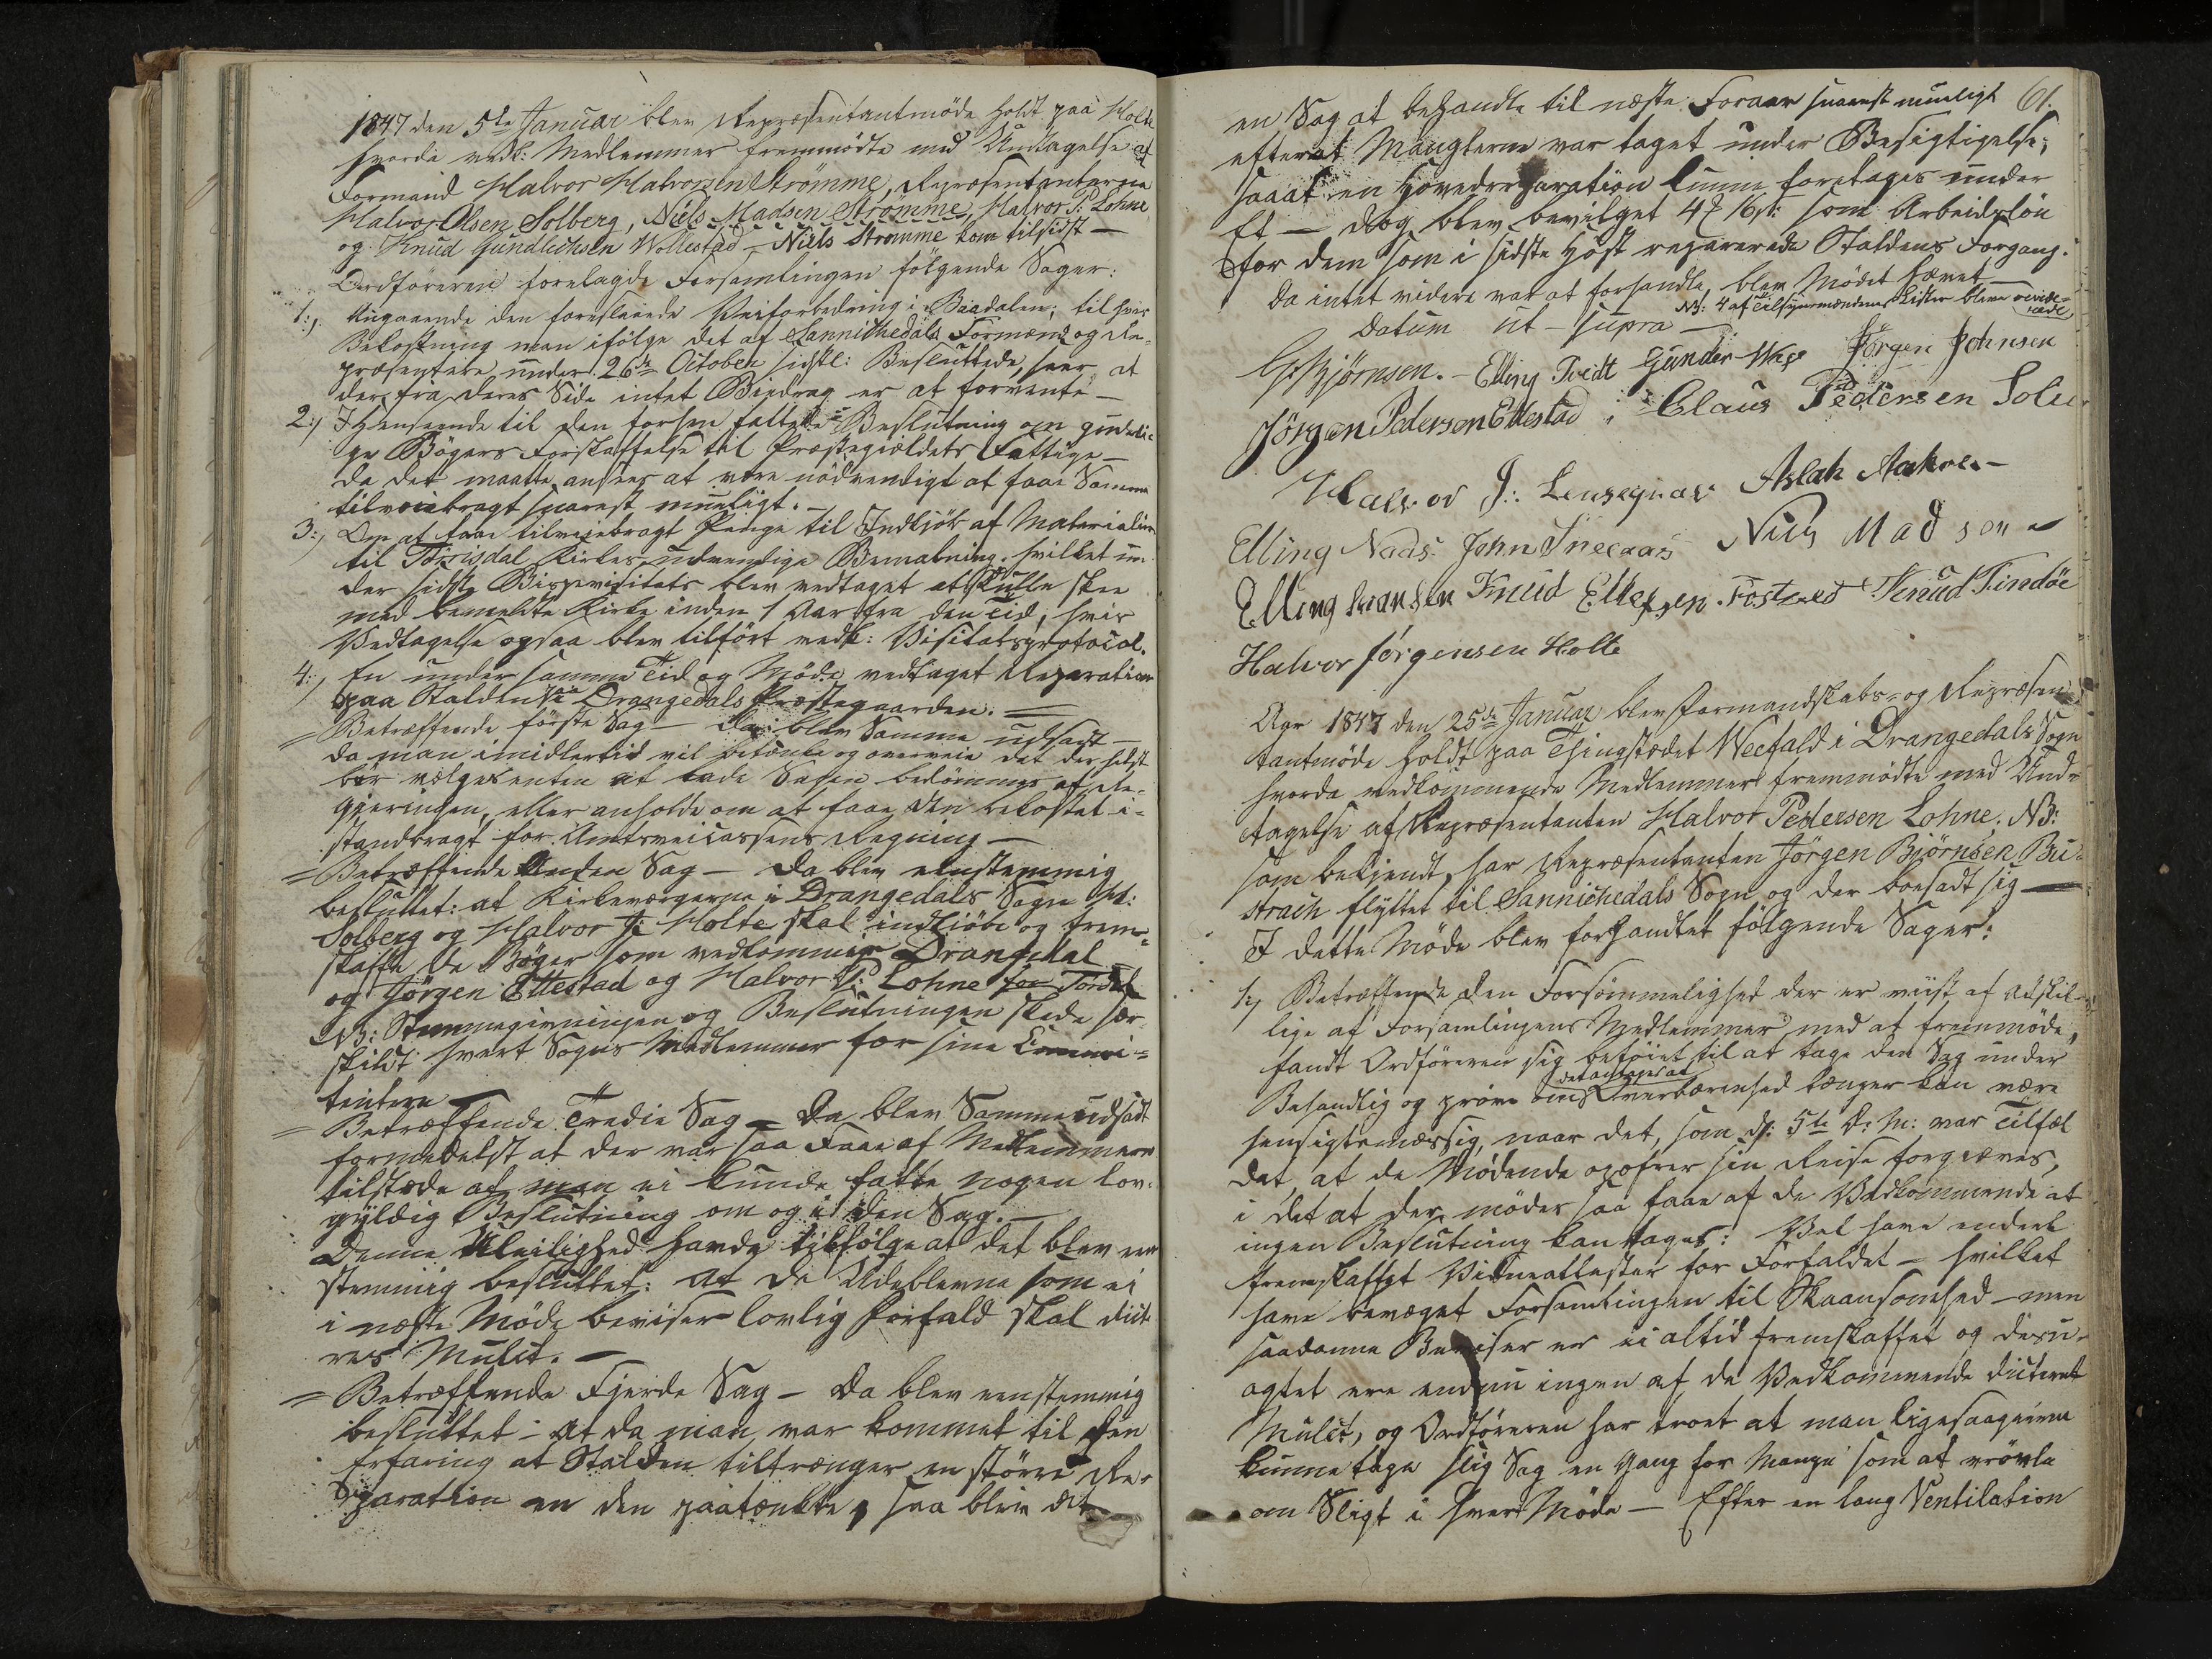 1847 den 5te Januar blev Repræsentantmöde holdt paa Holte
hvorda vedk: Medlemmer fremmödte med Undtagelse af
Formænd Halvor Halvorsen Strömme, Repræsentanterne
Halvor Olsen Solberg, Niels Madsen Strömme, Halvor P. Lohne
og Knud Gundlichsen Wollestad – Niels Strömme kom tilsidst –
Ordföreren forelagde Forsamlingen fölgende Sager:
1:, Angaaende den foreslaaede Veiforbedring i Baadalen; til hvis
Bekostning man ifölge det af Sannikedals Formænd og Re-
præsentere under 26de October sidstl: Besluttede, seer at
der fra deres Side intet Bidrag er at forvente –
2:, I Henseende til den forhen fattede Beslutning om gudeli-
ge Bögers Forskaffelse til Præstegieldets Fattige –
da det maatte ansees at være nödvendigt at faae Samme
tilveiebragt snarest mueligt. –
3:, Om at faae tilveiebragt Penge til Indkjöb af Materialier
til Törrisdal Kirkes udvendige Bemaling, hvilket un-
der sidste Bispevisitats blev vedtaget at skulle skee
med bemeldte Kirke inden 1 Aar fra den Tid, hvis
Vedtagelse ogsaa blev tilfört vedk: Visitatsprotocol.
4:, En under samme Tid og Möde vedtaget Reparation
paa Stalden paa Drangedals Præstegaarden. =
= Betræffende förste Sag – da blev Samme udsadt –
da man imidlertid vil betænke og overveie det der helst
bör vælges enten at lade Sagen bedömmes af Re-
gjeringen, eller anholde om at faae den bekostet i-
standbragt for Amtsveicassens Regning –
= Betræffende Anden Sag – da blev eenstemmig
besluttet: at Kirkeværgerne i Drangedals Sogn
Solberg og Halvor J: Holte skal indkjöbe og frem-
skaffe de Böger som vedkommer Drangedal –
og Jörgen Ettestad og Halvor P: Lohne for Tördal
NB: Stemmegivningen og Beslutningen skede sær-
skildt hvert Sogns Medlemmer for sine Commi-
tentere –
= Betræffende Tredie Sag – Da blev Samme udsadt
formedelst at der var saa Faae af Medlemmerne
tilstede at man ei kunde fatte nogen lov-
gyldig Beslutning om og i den Sag. –
Denne Uleilighed havde tilfölge at det blev een-
stemmig besluttet: At de Udeblevne som ei
i næste Möde beviser lovlig Forfald skal dicte-
res Mulct. –
= Betræffende Fjerde Sag – da blev eenstemmig
besluttet – at da man var kommet til den
Erfaring at Stalden tiltrænger en större Re-
paration en den paatænkte, saa blev det
61.
en Sag at behandle til næste Foraar snarest mueligt
efterat Manglerne var taget under Besigtigelse;
saaat en Hovedreparation kunne foretages under
Et – dog blev bevilget 4 16 som Arbeidslön
for dem som i sidste Höst reparerede Staldens Forgang.
Da intet videre var at forhandle, blev Mödet hævet –
NB: 4 af Tilsynsmændenes Lister bleve revide-
rede
Datum ut – supra –
G. Bjørnsen. – Elling Tvedt Gunder Wefald Jörgen Johnsen
Jörgen Pedersen Ettestad Claus Pedersen Solum
Halvor J: Lensegrav Aslak Aakre. –
Elling Naas John Sneeaas Niels Madsen
Elling Hansen Knud Ellefsen Fostveed Knud Timdöe
Halvor Jörgensen Holte
Aar 1847 den 25de Januar blev Formandskabs- og Repræsen-
tantmöde holdt paa Thingstædet Weefald i Drangedals Sogn
hvorda vedkommende Medlemmer fremmödte med Und-
tagelse af Repræsentanten Halvor Pedersen Lohne. NB:
som bekjendt, har Repræsentanten Jörgen Björnsen Bu-
strach flyttet til Sannikedals Sogn og der boesadt sig –
I dette Möde blev forhandlet fölgende Sager:
1:, Betræffende den Forsömmelighed der er viist af adskil-
lige af Forsamlingens Medlemmer med at fremmöde,
fandt Ordföreren sig beföiet til at tage den Sag under
det antages at
Behandlig og pröve om Overbærenhed længer kan være
hensigtsmæssig, naar det, som d: 5te d: M: var Tilfæl-
det, at de Mödende opofrer sin Reise forgjæves,
i det at der möder saa faae af de Vedkommende at
ingen Beslutning kan tages: Vel have endeel
fremskaffet Vidneattester for Forfaldet – hvilket
have bevæget Forsamlingen til Skaansomhed – men
saadanne Beviser er ei altid fremskaffet og desu-
agtet ere endnu ingen af de Vedkommende dicteret
Mulct, og Ordföreren har troet at man ligesaagjerne
kunne tage slig Sag en Gang for Mange som at vrövle
om Sligt i hvert Möde – Efter en lang Ventilation